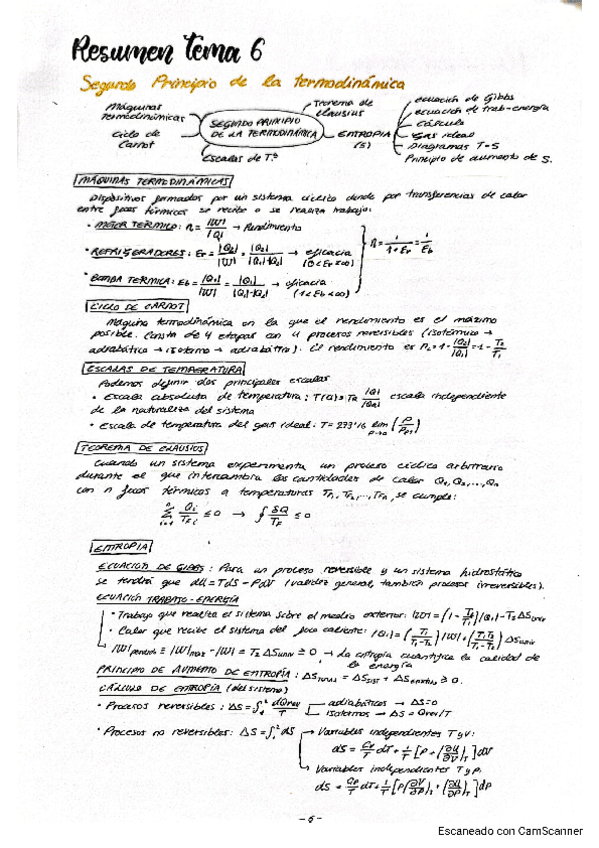 Resumen tema 6
Segundo Principio de la termodinámica
Máquinas termodinámicas
Ciclo de Carnot
SEGUNDO PRINCIPIO DE LA TERMODINÁMICA
Teorema de clausius
Escalas de Tª
ENTROPIA (S)
ecuación de Gibbs
ecuación de trab-energía
Cálculo
Gas ideal
Diagramas T-S
Principio de aumento de S.
MÁQUINAS TERMODINÁMICAS
Dispositivos formados por un sistema cíclico donde por transferencias de calor
entre focos térmicos se recibe o se realiza trabajo:
• MOTOR TÉRMICO: η = |W|/|Q| → Rendimiento
• REFRIGERADORES: Er = |Q2|/|W| = |Q2|/(|Q1|-|Q2|) → eficacia (0 < Er < ∞)
η = 1/(1+Er) = 1/Eb
• BOMBA TERMICA: Eb = |Q1|/|W| = |Q1|/(|Q1|-|Q2|) → eficacia (1 < Eb < ∞)
CICLO DE CARNOT
Máquina termodinámica en la que el rendimiento es el máximo
posible. Consta de 4 etapas con 4 procesos reversibles (isotérmico →
adiabático → isotermo → adiabático). El rendimiento es ηc = 1 - |Q2|/|Q1| = 1 - T2/T1
ESCALAS DE TEMPERATURA
Podemos definir dos principales escalas
• Escala absoluta de temperatura: escala independiente
de la naturaleza del sistema
• Escala de temperatura del gas ideal: T = 273'16 lim
TEOREMA DE CLAUSIUS
Cuando un sistema experimenta un proceso cíclico arbitrario
durante el que intercambia las cantidades de calor Q1, Q2,..., Qn
con n focos térmicos a temperaturas TF1, TF2,..., TFn, se cumple:
∑ Qi/TFi ≤ 0 → ∮ δQ/TF ≤ 0
ENTROPIA
ECUACIÓN DE GIBBS: Para un proceso reversible y un sistema hidrostático
se tendrá que dU = TdS - PdV (validez general, también procesos irreversibles).
ECUACIÓN TRABAJO-ENERGÍA
• Trabajo que realiza el sistema sobre el medio exterior: |W| = (1 - T2/T1)|Q1| - T2 ΔSuniv
• Calor que recibe el sistema del foco caliente: |Q1| = (T1/(T1-T2))|W| + (T1T2/(T1-T2)) ΔSuniv
|W|perdido ≡ |W|max - |W| = T2 ΔSuniv ≥ 0 → La entropía cuantifica la calidad de
la energía
PRINCIPIO DE AUMENTO DE ENTROPÍA: ΔSuniv = ΔSsist + ΔSentorno ≥ 0.
CÁLCULO DE ENTROPÍA (del sistema)
• Procesos reversibles: ΔS = ∫ δQrev/T
adiabáticos → ΔS=0
isotermos → ΔS = Qrev/T
• Procesos no reversibles: ΔS = ∫ dS
Variables independientes T y V:
dS = Cv/T dT + 1/T [P + (∂U/∂V)T] dV
Variables independientes T y P:
dS = Cp/T dT + 1/T [P(∂V/∂P)T + (∂U/∂P)T] dP
- 6 -
Escaneado con CamScanner